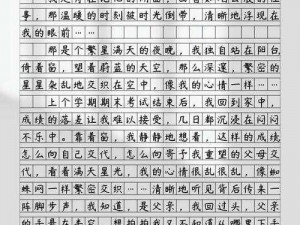 重，那温暖的时刻被时光倒带，清晰地浮现在
我的眼前……
那是个繁星满天的夜晚，我独自站在阳台，
倚着窗，望着蔚蓝的天空，那么深邃，繁密的
星星杂乱地交织在空中，像我的心情一样……
上个学期期末考试结束后，我回到家中，
成绩的落差让我难以接受，几日都沉浸在闷闷
不乐中。靠着窗，我静静地想着，这样的成绩
怎么向自己交代，怎么向寄予我重望的父母交
代，呆呆地看着满天星光，影影绰绰，像是蜘
蛛网一样繁密交织……清晰地听见背后传来一
阵脚步声，我知道，是父亲，我回过头，父亲